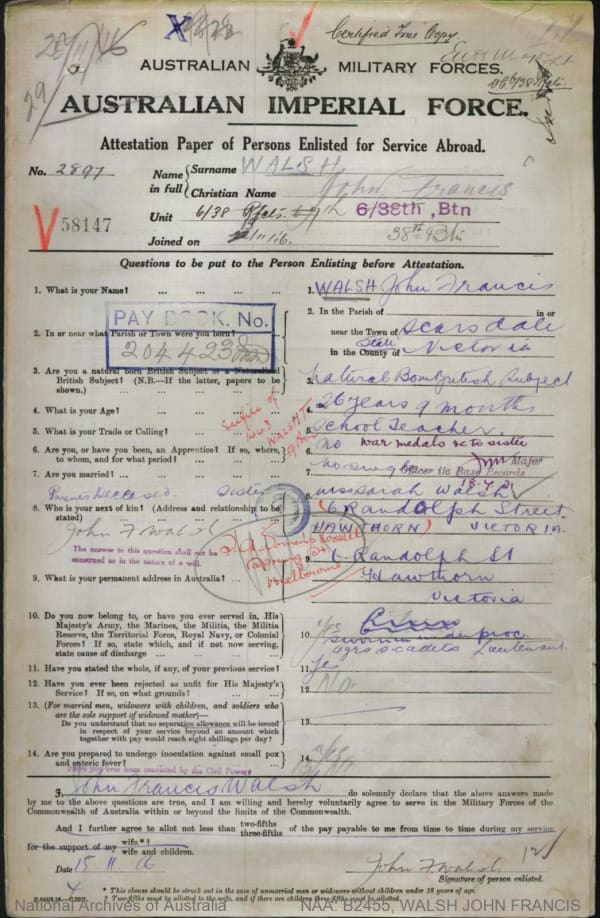 28/11/16
X
Certified True Copy
29
AUSTRALIAN MILITARY FORCES.
AUSTRALIAN IMPERIAL FORCE.
Attestation Paper of Persons Enlisted for Service Abroad.
No. 2897
Name in full { Surname WALSH
Christian Name John Francis
V 58147
Unit 6/38 Rfcts. 6/38th, Btn
Joined on 11/16. 38th Btn
Questions to be put to the Person Enlisting before Attestation.
1. What is your Name? ... ... ... ... 1. WALSH John Francis
PAY BOOK. No.
204423
2. In or near what Parish or Town were you born? 2. In the Parish of in or
near the Town of Scarsdale
State
in the County of Victoria
3. Are you a natural born British Subject or a Naturalized
British Subject? (N.B.—If the latter, papers to be
shown.) ... ... ... 3. Natural Born British Subject
4. What is your Age? ... ... ... 4. 26 years 9 months
5. What is your Trade or Calling? ... ... 5. School Teacher
6. Are you, or have you been, an Apprentice? If so, where,
to whom, and for what period? ... ... 6. no
war medals &c to sister
Major
Officer i/c Base Records
7. Are you married? ... ... ... 7. no single
18.7.21
Parents Deceased Sister
8. Who is your next of kin? (Address and relationship to be
stated) 8. Miss Sarah Walsh
(6 RANDOLPH STREET
HAWTHORN) VICTORIA.
John F Walsh
The answer to this question shall not be
construed as in the nature of a will.
Spring St
Melbourne
9. What is your permanent address in Australia? ... 9. 6 Randolph St
Hawthorn
Victoria
10. Do you now belong to, or have you ever served in, His
Majesty's Army, the Marines, the Militia, the Militia
Reserve, the Territorial Force, Royal Navy, or Colonial
Forces? If so, state which, and if not now serving,
state cause of discharge ... ... 10. yes
cadets Lieutenant
11. Have you stated the whole, if any, of your previous service? 11. Yes
12. Have you ever been rejected as unfit for His Majesty's
Service? If so, on what grounds? ... ... 12. No.
13. (For married men, widowers with children, and soldiers who
are the sole support of widowed mother)—
Do you understand that no separation allowance will be issued
in respect of your service beyond an amount which
together with pay would reach eight shillings per day? 13.
14. Are you prepared to undergo inoculation against small pox
and enteric fever? ... ... ... 14. yes
Have you ever been convicted by the Civil Power?
I, John Francis Walsh do solemnly declare that the above answers made
by me to the above questions are true, and I am willing and hereby voluntarily agree to serve in the Military Forces of the
Commonwealth of Australia within or beyond the limits of the Commonwealth.
And I further agree to allot not less than two-fifths three-fifths of the pay payable to me from time to time during my service
for the support of my wife.*† wife and children.
Date 15.11.16
John F Walsh
Signature of person enlisted.
* This clause should be struck out in the case of unmarried men or widowers without children under 18 years of age.
† Two-fifths must be allotted to the wife, and if there are children three-fifths must be allotted.
National Archives of Australia
NAA: B2455, WALSH JOHN FRANCIS